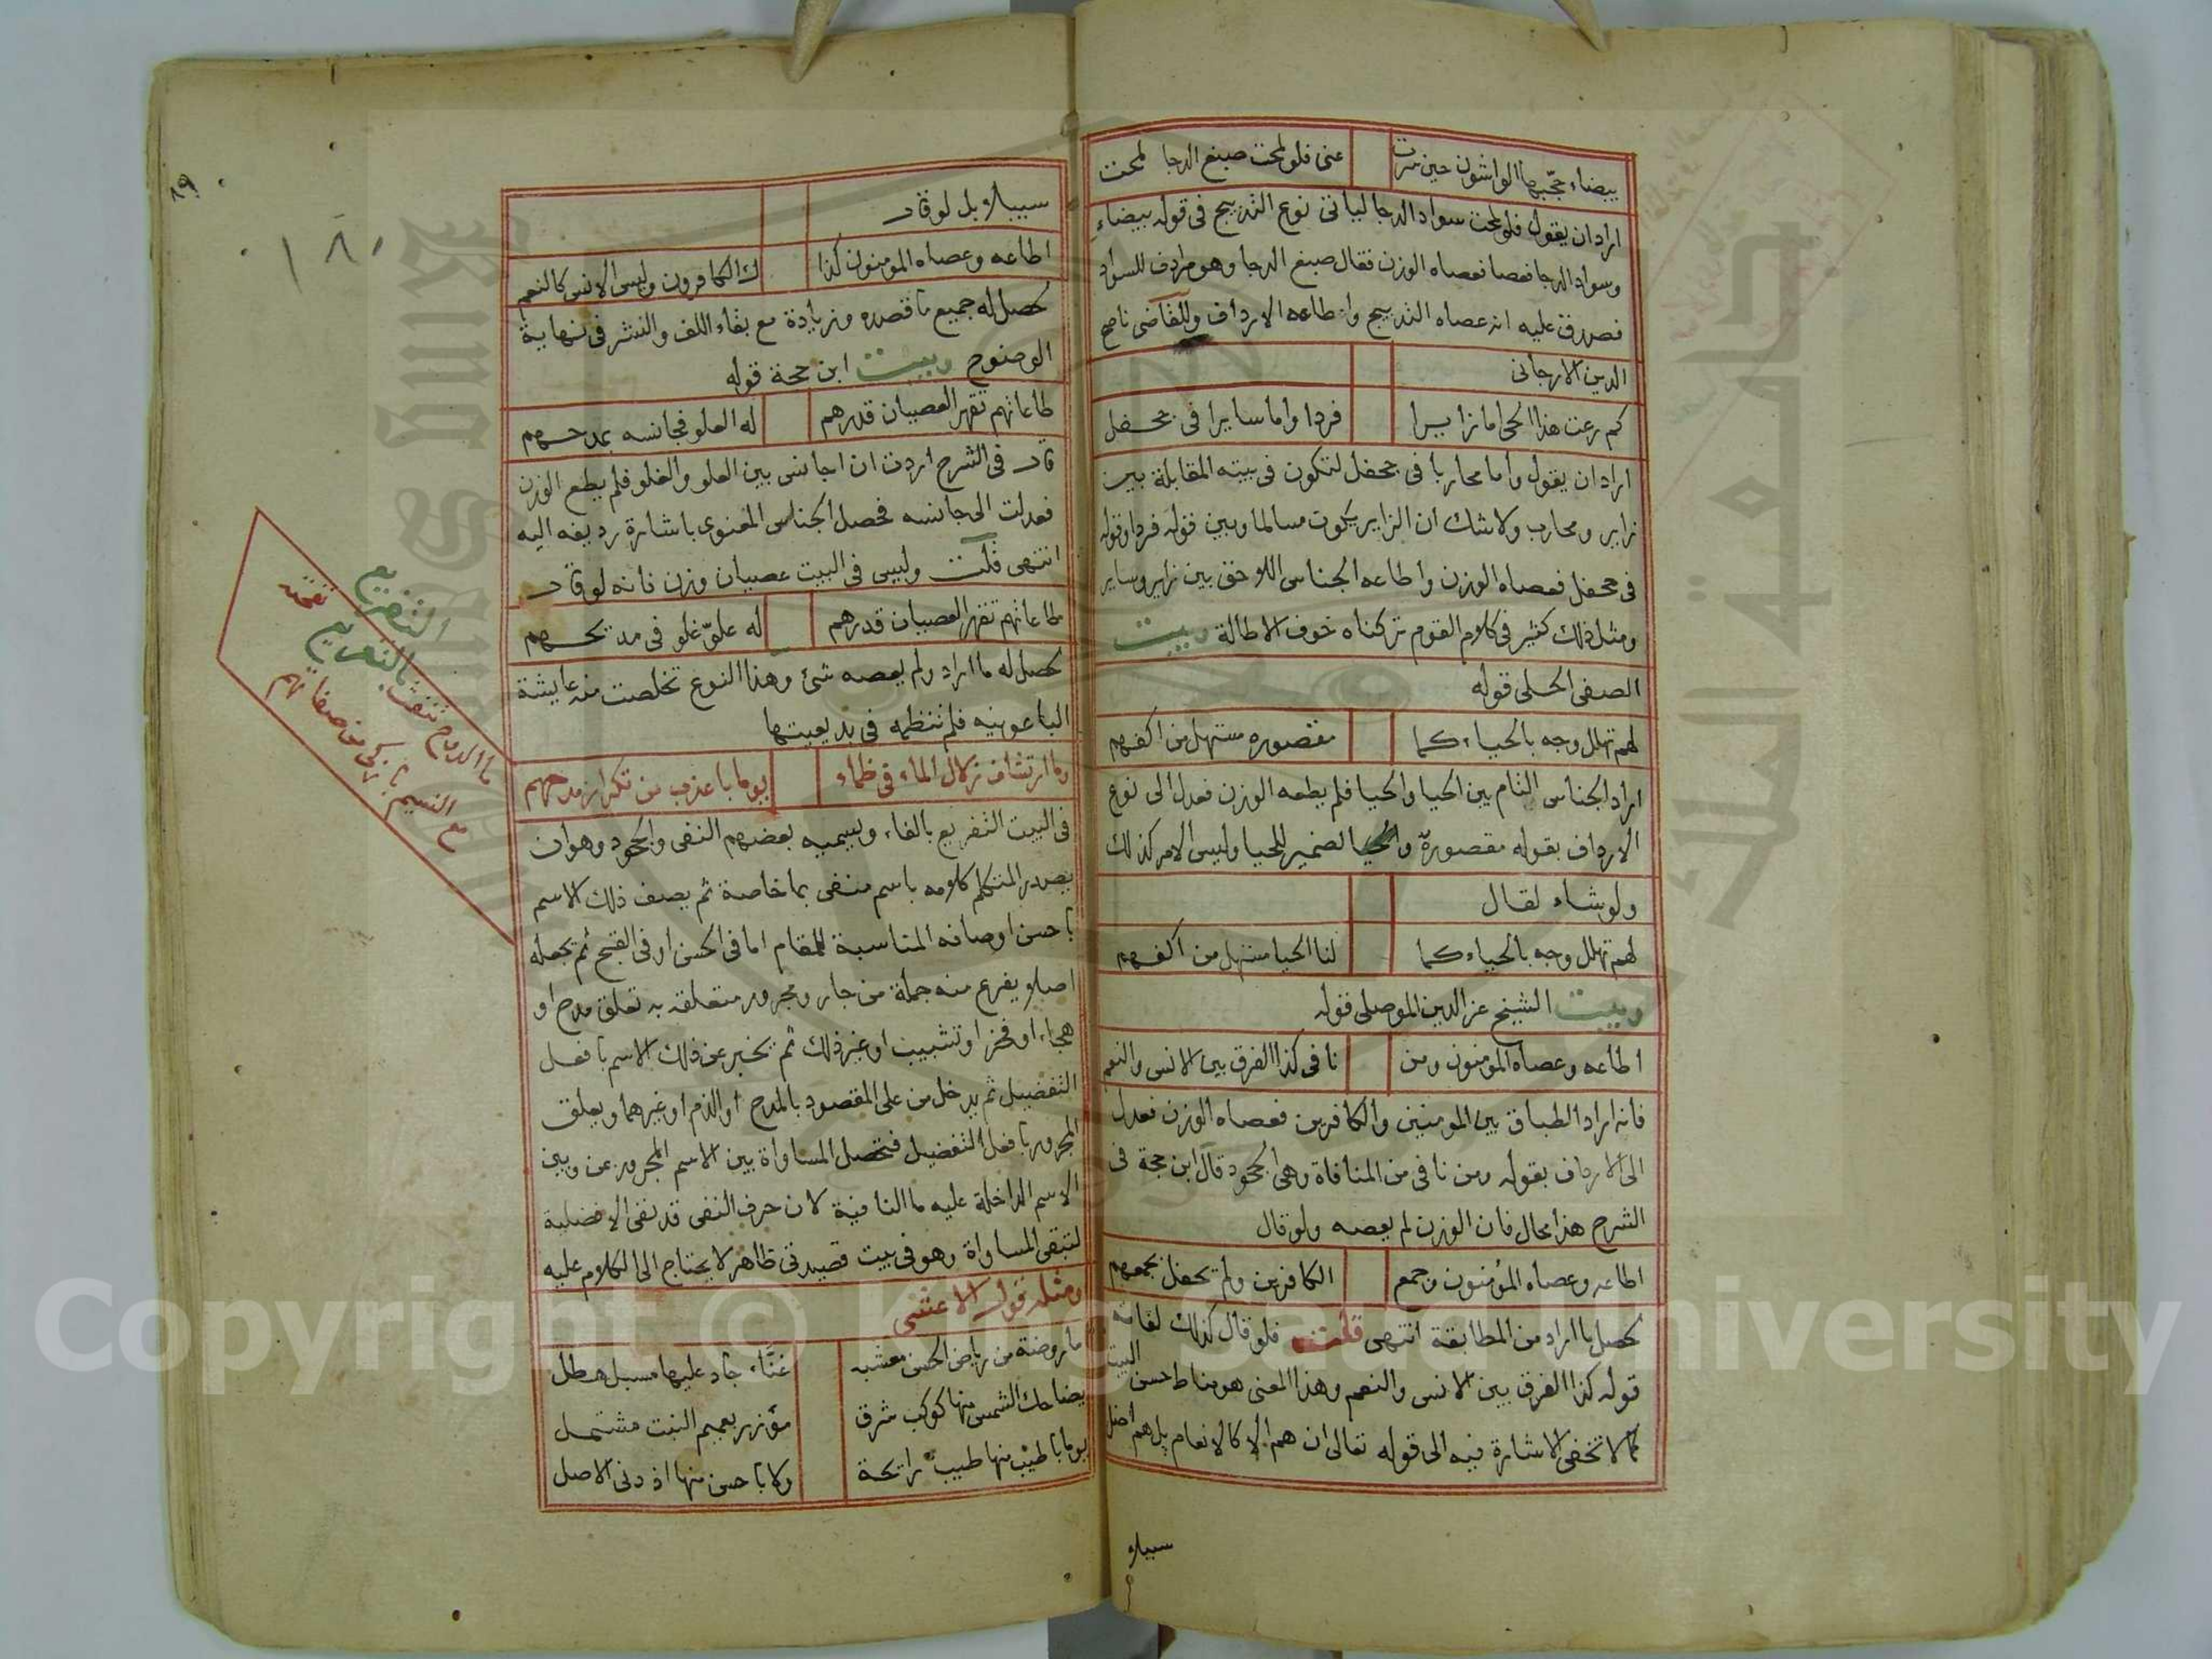 بيضاء حجّبها الواشون حين سرت عنى فلو لمحت صبغ الدجا لمحت
اراد ان يقول فلو لمحت سواد الدجا لياتى نوع التدبيج فى قوله بيضاء
وسواد الدجا فعصاه الوزن فقال صبغ الدجا وهو مرادف للسواد
فصدق عليه انه عصاه التدبيج واطاعه الارداف وللقاضى ناصح
الدين الارجانى
كم رعت هذا الحى اما زايرا فردا واما سايرا فى جحفل
اراد ان يقول واما محاربا فى جحفل لتكون فى بيته المقابلة بين
زاير ومحارب ولاشك ان الزاير يكون مسالما وبين قوله فردا وقوله
فى جحفل فعصاه الوزن واطاعه الجناس اللاحق بين زاير وساير
ومثل ذلك كثير فى كلام القوم تركناه خوف الاطالة وبيت
الصفى الحلى قوله
لهم تهلل وجه بالحياء كما مقصوره مستهل من اكفهم
اراد الجناس التام بين الحيا والحيا فلم يطعه الوزن فعدل الى نوع
الارداف بقوله مقصورة والحيا لضمير للحيا وليس الامر كذلك
ولو شاء لقال
لهم تهلل وجه بالحياء كما لنا الحيا مستهل من اكفهم
وبيت الشيخ عز الدين الموصلى قوله
اطاعه وعصاه المومنون ومن نافى كذا الفرق بين الانس والنعم
فانه اراد الطباق بين المومنين والكافرين فعصاه الوزن فعدل
الى الارداف بقوله ومن نافى من المنافاة وهى الجحود قال ابن حجة فى
الشرح هذا محال فان الوزن لم يعصه ولو قال
اطاعه وعصاه المؤمنون وجمع الكافرين ولم تحفل بجمعهم
تحصل ما اراد من المطابقة انتهى قلت فلو قال كذلك لفاته
قوله كذا الفرق بين الانس والنعم وهذا المعنى هو مناط حسن البيت
كما لا تخفى الاشارة فيه الى قوله تعالى ان هم الا كالانعام بل هم اضل
سبيلا
٨٩
١٨٠
سبيلا بل لو قال
اطاعه وعصاه المومنون كذا ك الكافرون وليس الانس كالنعم
تحصل له جميع ما قصده وزيادة مع بقاء اللف والنشر فى نهاية
الوضوح وبيت ابن حجة قوله
طاعاتهم تقهر العصيان قدرهم له العلو فجانسه بمدحهم
قال فى الشرح اردت ان اجانس بين العلو والغلو فلم يطع الوزن
فعدلت الى جانسه فحصل الجناس المعنوى باشارة رديفه اليه
انتهى قلت وليس فى البيت عصيان وزن فانه لو قال
طاعاتهم تقهر العصيان قدرهم له علوّ غلو فى مديحهم
تحصل له ما اراد ولم يعصه شئ وهذا النوع تخلصت منه عايشة
الباعونيه فلم تنظمه فى بديعيتها
وما ارتشاف زلال الماء فى ظماء يوما باعذب من تكرار مدحهم
فى البيت التفريع بالفاء ويسميه بعضهم النفى والجحود وهو ان
يصدر المتكلم كلامه باسم منفى بما خاصة ثم يصف ذلك الاسم
باحسن اوصافه المناسبة للمقام اما فى الحسن او فى القبح ثم يجعله
اصلا يفرع منه جملة من جار ومجرور متعلقه به تعلق مدح او
هجاء او فخر او تشبيب او غير ذلك ثم يخبر عن ذلك الاسم بافعل
التفضيل ثم يدخل من على المقصود بالمدح او الذم او غيرهما ويعلق
المجرور بافعل التفضيل فتحصل المساواة بين الاسم المجرور عن وبين
الاسم الداخلة عليه ما النافية لان حرف النفى قد نفى الافضلية
لتبقى المساواة وهو فى بيت قصيدتى ظاهر لا يحتاج الى الكلام عليه
ومثله قول الاعشى
ما روضة من رياض الحسن معشبه غنّاء جاد عليها مسبل هطل
يضاحك الشمس منها كوكب شرق مؤزر بعميم النبت مشتمل
يوما باطيب منها طيب رائحة ولا باحسن منها اذ دنى الاصل
التفريع
ما الروح تنفث بالتعريم نفحته
مع النسيم باذكى من صفاتهم